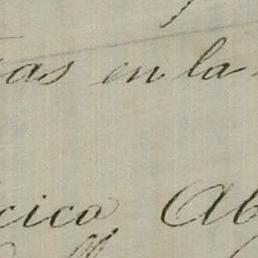 as en la
cica Ab